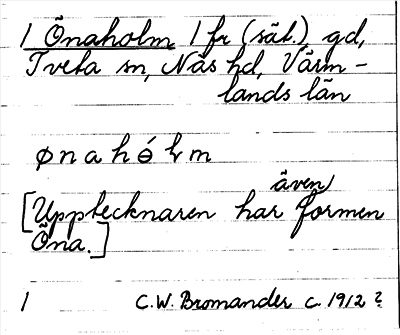 1 Önaholm 1 fr (sät.) gd,
Tveta sn, Näs hd, Värm-
lands län
ønahólm
[Upptecknaren har även formen
Öna.]
1 C.W. Bromander c. 1912?